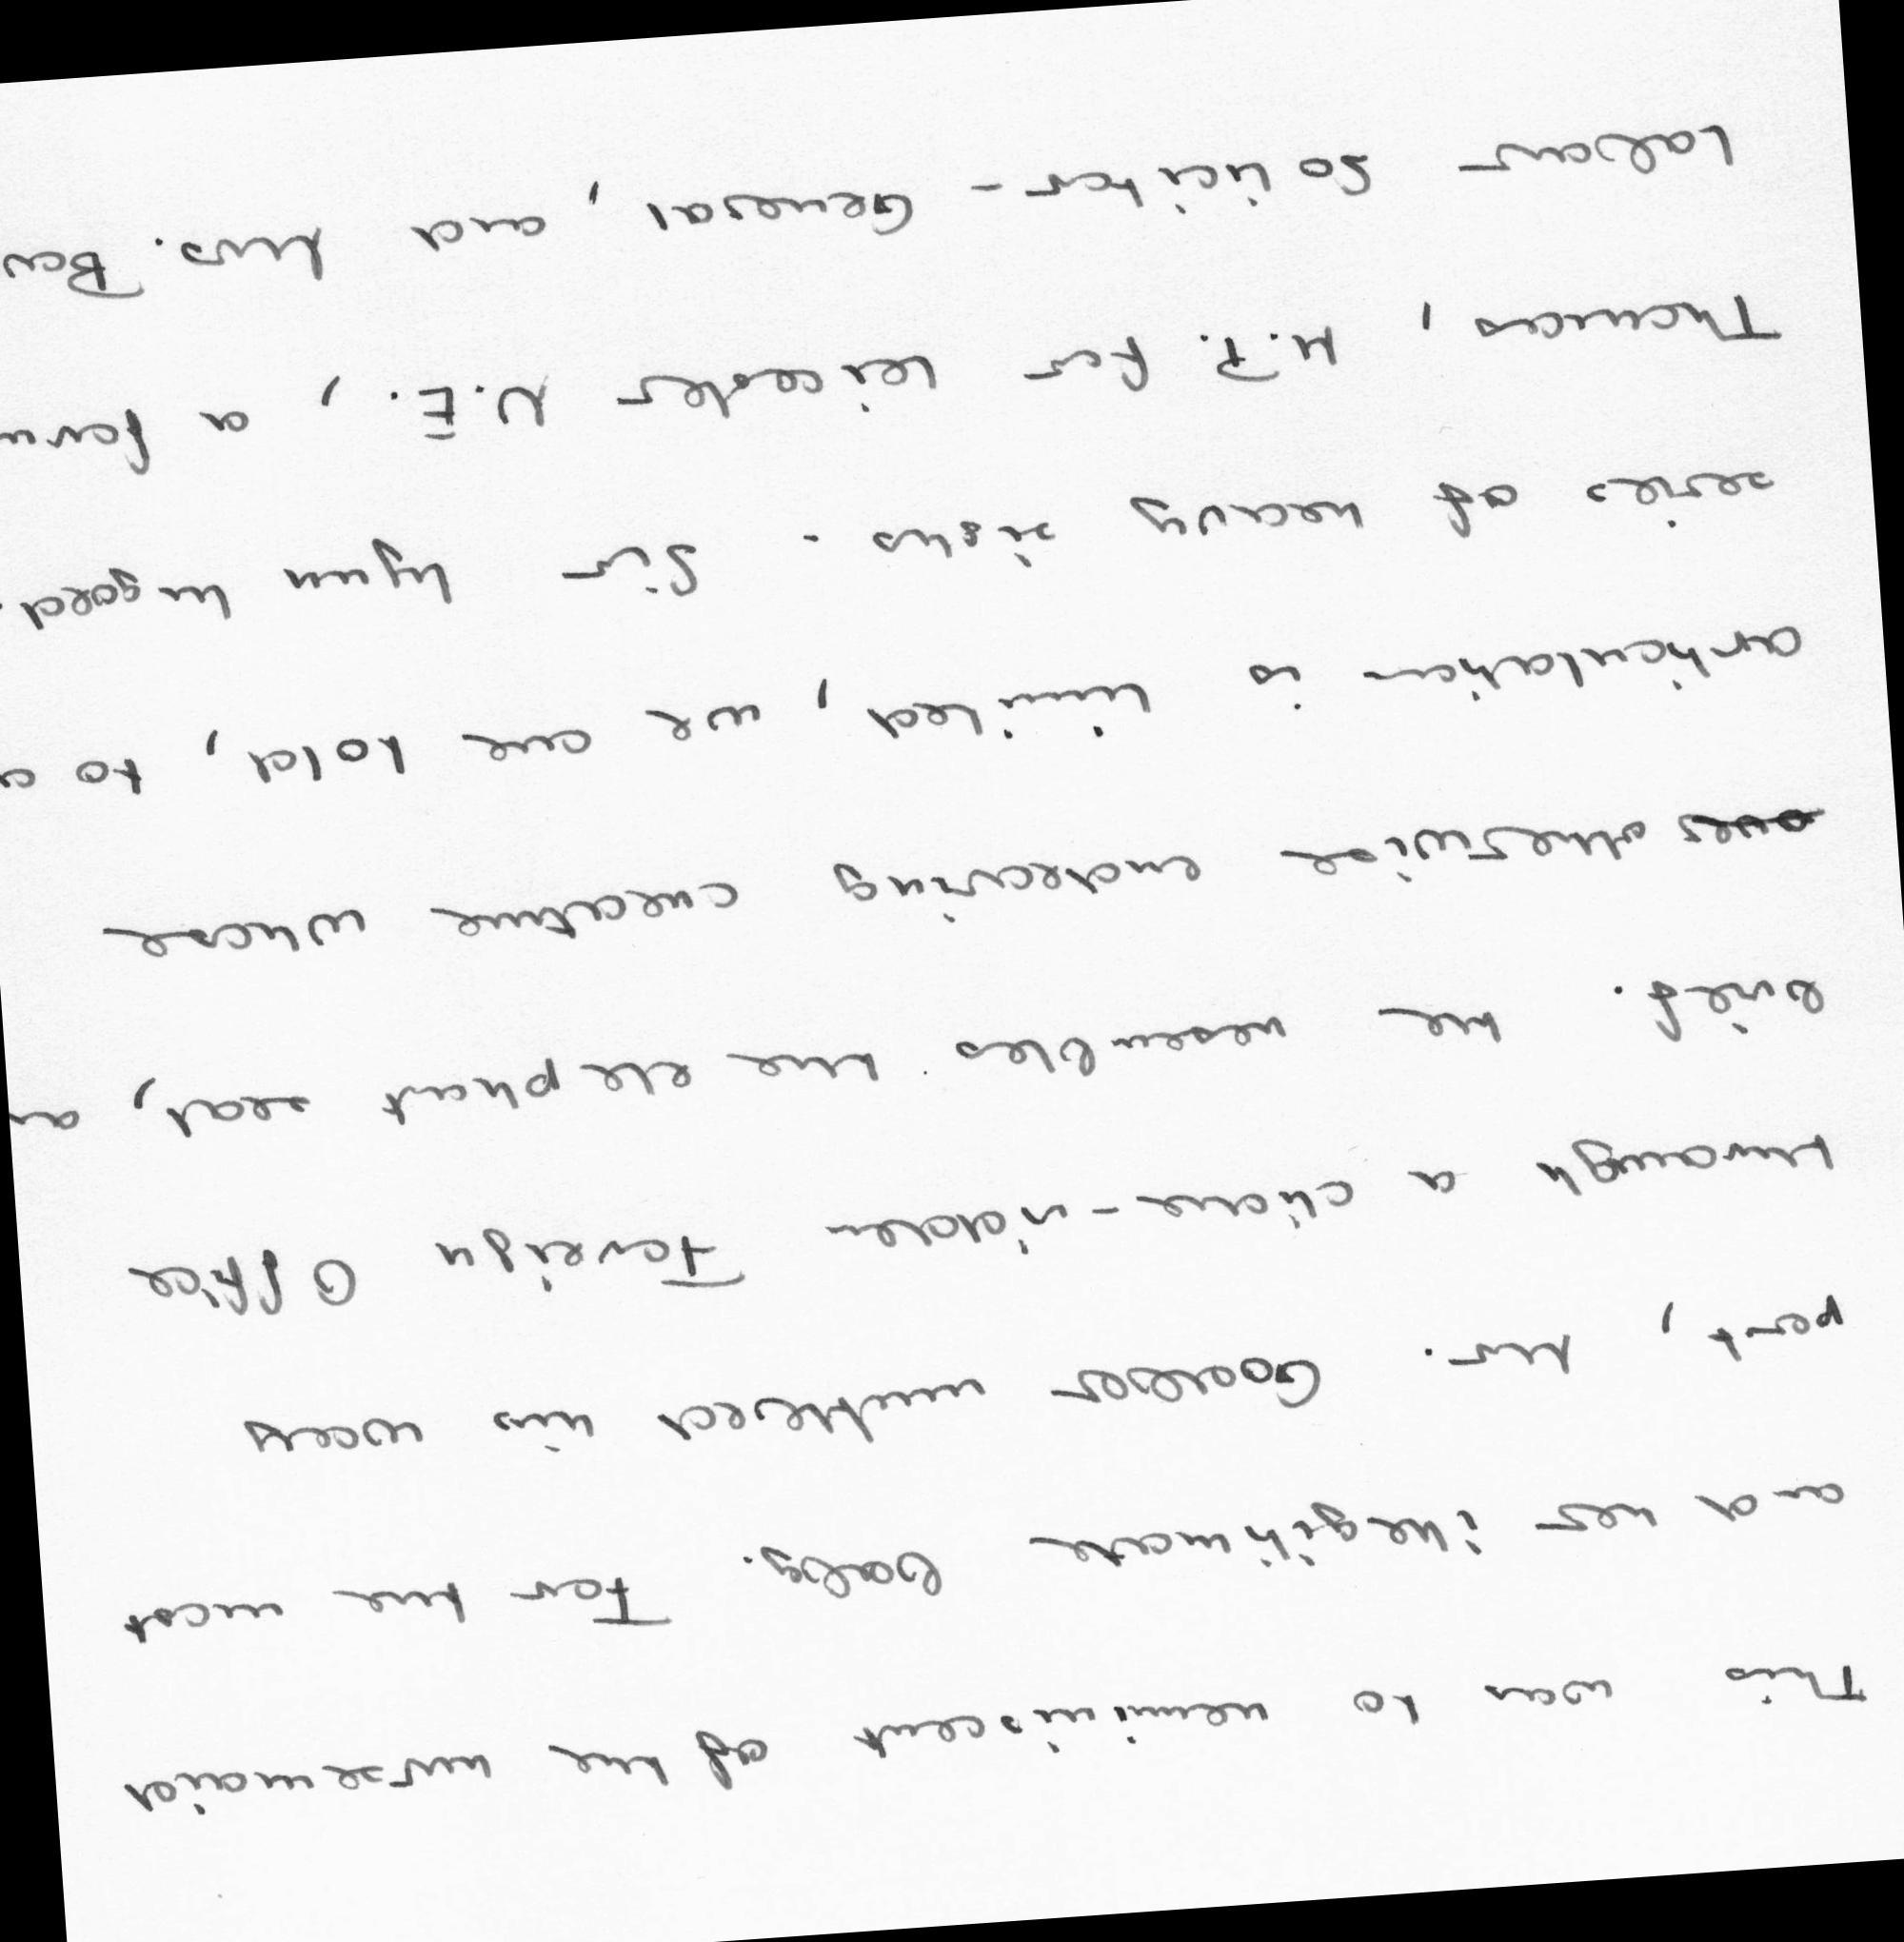 This was to reminiscent of the nursemaid
and her illegitimate baby. For the most
part, Mr. Godber muttered his words
through a cliche-ridden Foreign Office
brief. He resembles the elephant seal, an
otherwise endearing creature whose
articulation is limited, we are told, to a
series of weary sighs. Sir Lynn Ungoed-
Thomas, M.P. for Leicester N.E., a form
Labour Solicitor-General, and Mrs. Ben